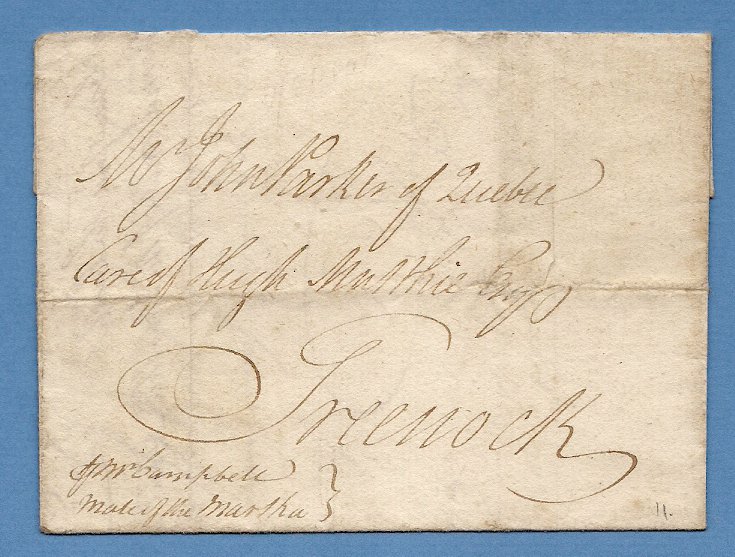 Mr John Parker of Quebec
Care of Hugh Mathie Esqr
Greenock
pr Mr Campbell
Mate of the Martha
11.